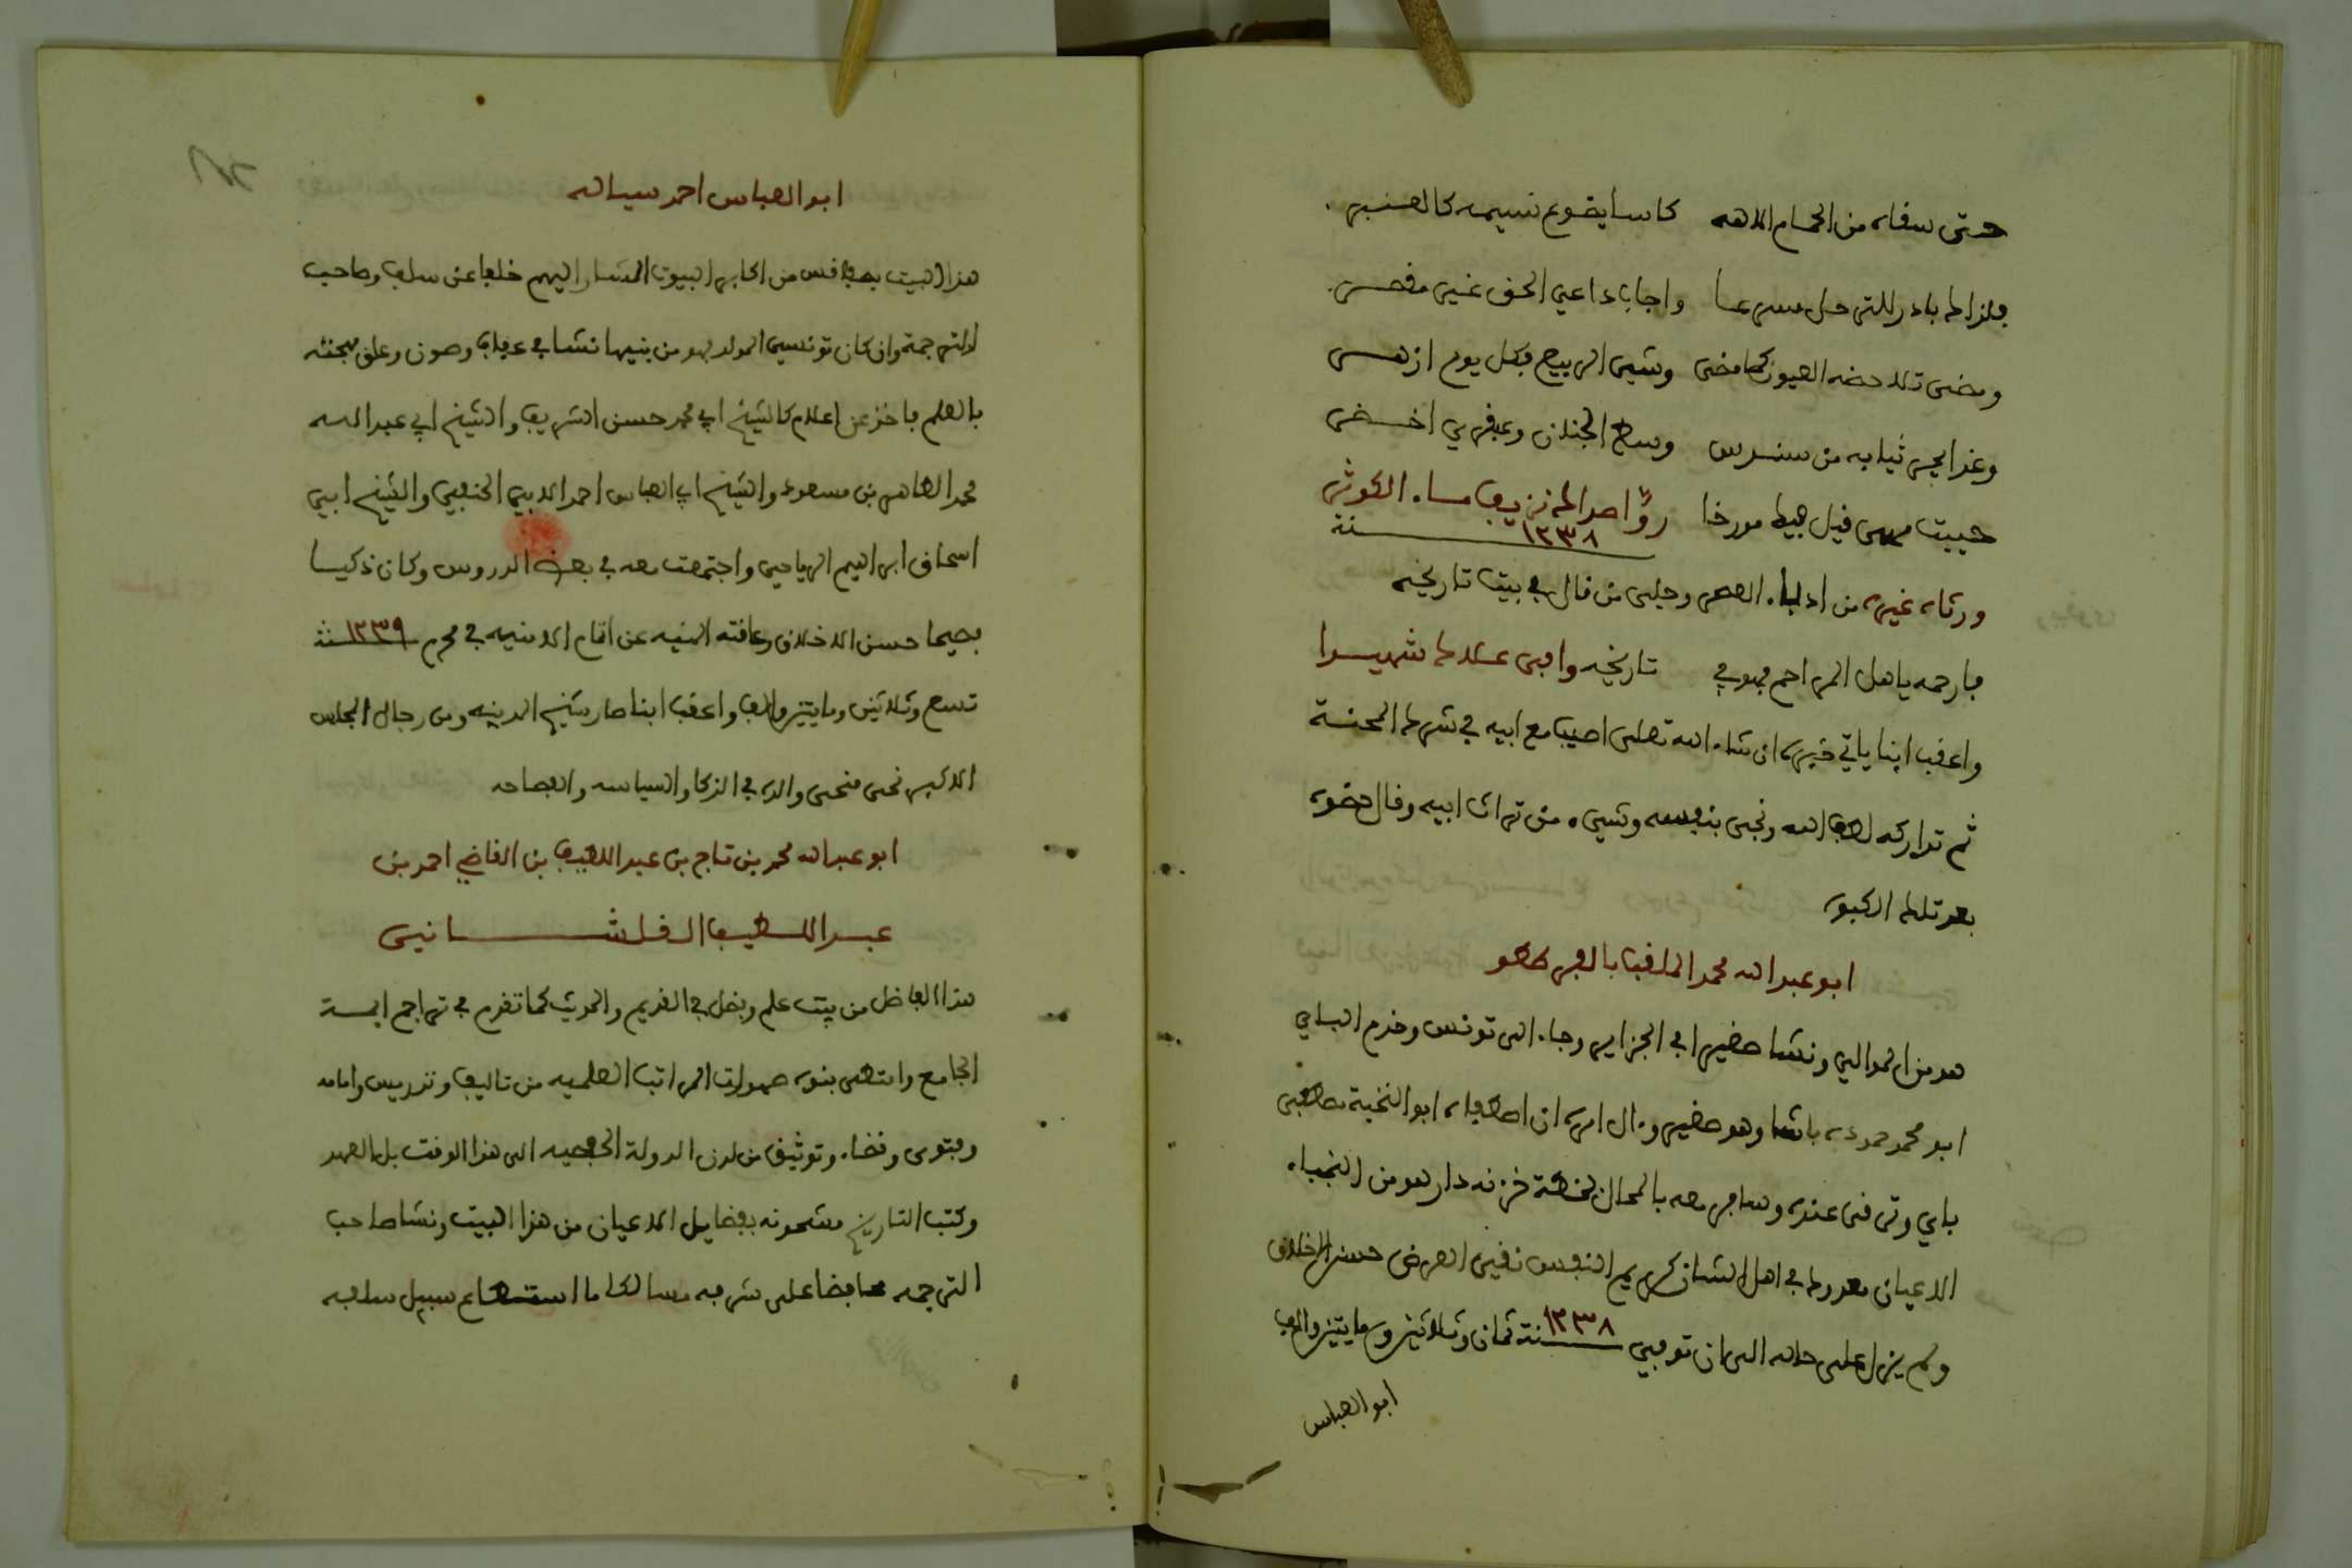 حتى سقاه من الحمام الاهه كاسا يضوع نسيمه كالعنبر
فلذاك بادر للترحل مسرعا واجاب داعي الحق غير مقصر
ومضى تلاحضه العيون كما مضى وشي الربيع بكل يوم ازهر
وغدا يجر ثيابه من سندس وسط الجنان وعبقري اخضر
حييت قبل هبط مورخا رؤا صداك نزيف ماء الكوثر
سنة ١٢٣٨
ورثاه غيره من ادباء العصر وحلى من قال في بيت تاريخه
بارحمه ياهل المراحم فهو في تاريخه وافى علاك شهيدا
واعقب ابنا ياتي خبره ان شاء الله تعلى اصيب مع ابيه في شرك المحنة
ثم تداركه لطف الله ونجى بنفسه وشيء من تراث ابيه وقال حضوه
بعد تلك الكبوه
ابو عبد الله محمد الملقب بالقرطو
هو من الموالي ونشا صغيرا في الجزاير وجاء الى تونس وخدم الباي
ابو محمد حموده باشا وهو صغير وءال امره ان اصطفاه ابو النخبة مصطفى
باي وترقى عنده وسافر معه بالمحال بخطة خزنه دار هو من النجباء
الاعيان معدود في اهل الشان كريم النفس نقي العرض حسن الاخلاق
ولم يزل على حاله الى ان توفي سنة ١٢٣٨ ثمان وثلاثين ومايتين والف
ابو العباس
ابو العباس احمد سيالة
هذا البيت بصفاقس من اكابر البيوت المشار اليهم خلفا عن سلف وصاحب
الترجمة وان كان تونسي المولد فهو من بنيها نشا في عفاف وصون وعلق مهجته
بالعلم فاخذ عن اعلام كالشيخ ابي محمد حسن الشريف والشيخ ابي عبد الله
محمد الطاهر بن مسعود والشيخ ابي العباس احمد الابي الحنفي والشيخ ابي
اسحاق ابراهيم الرياحي واجتمعت معه في بعض الدروس وكان ذكيا
فصيحا حسن الاخلاق وعاقته المنيه عن اتمام الامنيه في محرم سنة ١٢٣٩
تسع وثلاثين ومايتين والف واعقب ابنا صار شيخ المدينه ومن رجال المجلس
الاكبر نحى منحى والده في الذكا والسياسه والفصاحه
ابو عبد الله محمد بن تاج بن عبد اللطيف بن القاضي احمد بن
عبد اللطيف القلشاني
هذا الفاضل من بيت علم وفضل في القديم والحديث كما تقدم في تراجم ايمة
الجامع وامتطى بنوه صهوات المراتب العلميه من تاليف وتدريس وامامه
وفتوى وقضاء وتوثيق من لدن الدولة الحفصيه الى هذا الوقت بل العهد
وكتب التاريخ مشحونه بفضايل الاعيان من هذا البيت ونشا صاحب
الترجمه محافظا على شرفه سالكا ما استطاع سبيل سلفه